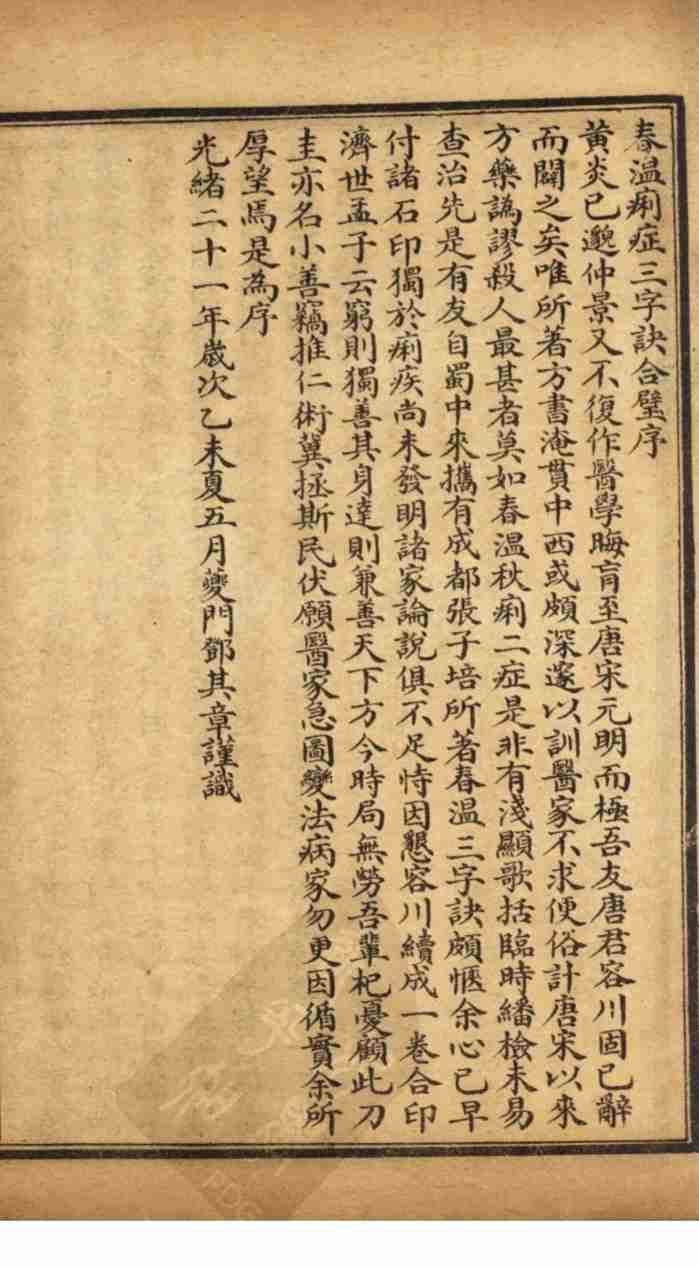 春溫痢症三字訣合璧序
黃炎已邈仲景又不復作醫學晦盲至唐宋元明而極吾友唐君容川固已辭
而闢之矣唯所著方書淹貫中西或頗深邃以訓醫家不求便俗計唐宋以來
方藥譌謬殺人最甚者莫如春溫秋痢二症是非有淺顯歌括臨時繙檢未易
查治先是有友自蜀中來攜有成都張子培所著春溫三字訣頗愜余心已早
付諸石印獨於痢疾尚未發明諸家論說俱不足恃因懇容川續成一卷合印
濟世孟子云窮則獨善其身達則兼善天下方今時局無勞吾輩杞憂顧此刀
圭亦名小善竊推仁術冀拯斯民伏願醫家急圖變法病家勿更因循實余所
厚望焉是為序
光緒二十一年歲次乙未夏五月夔門鄧其章謹識
PDG